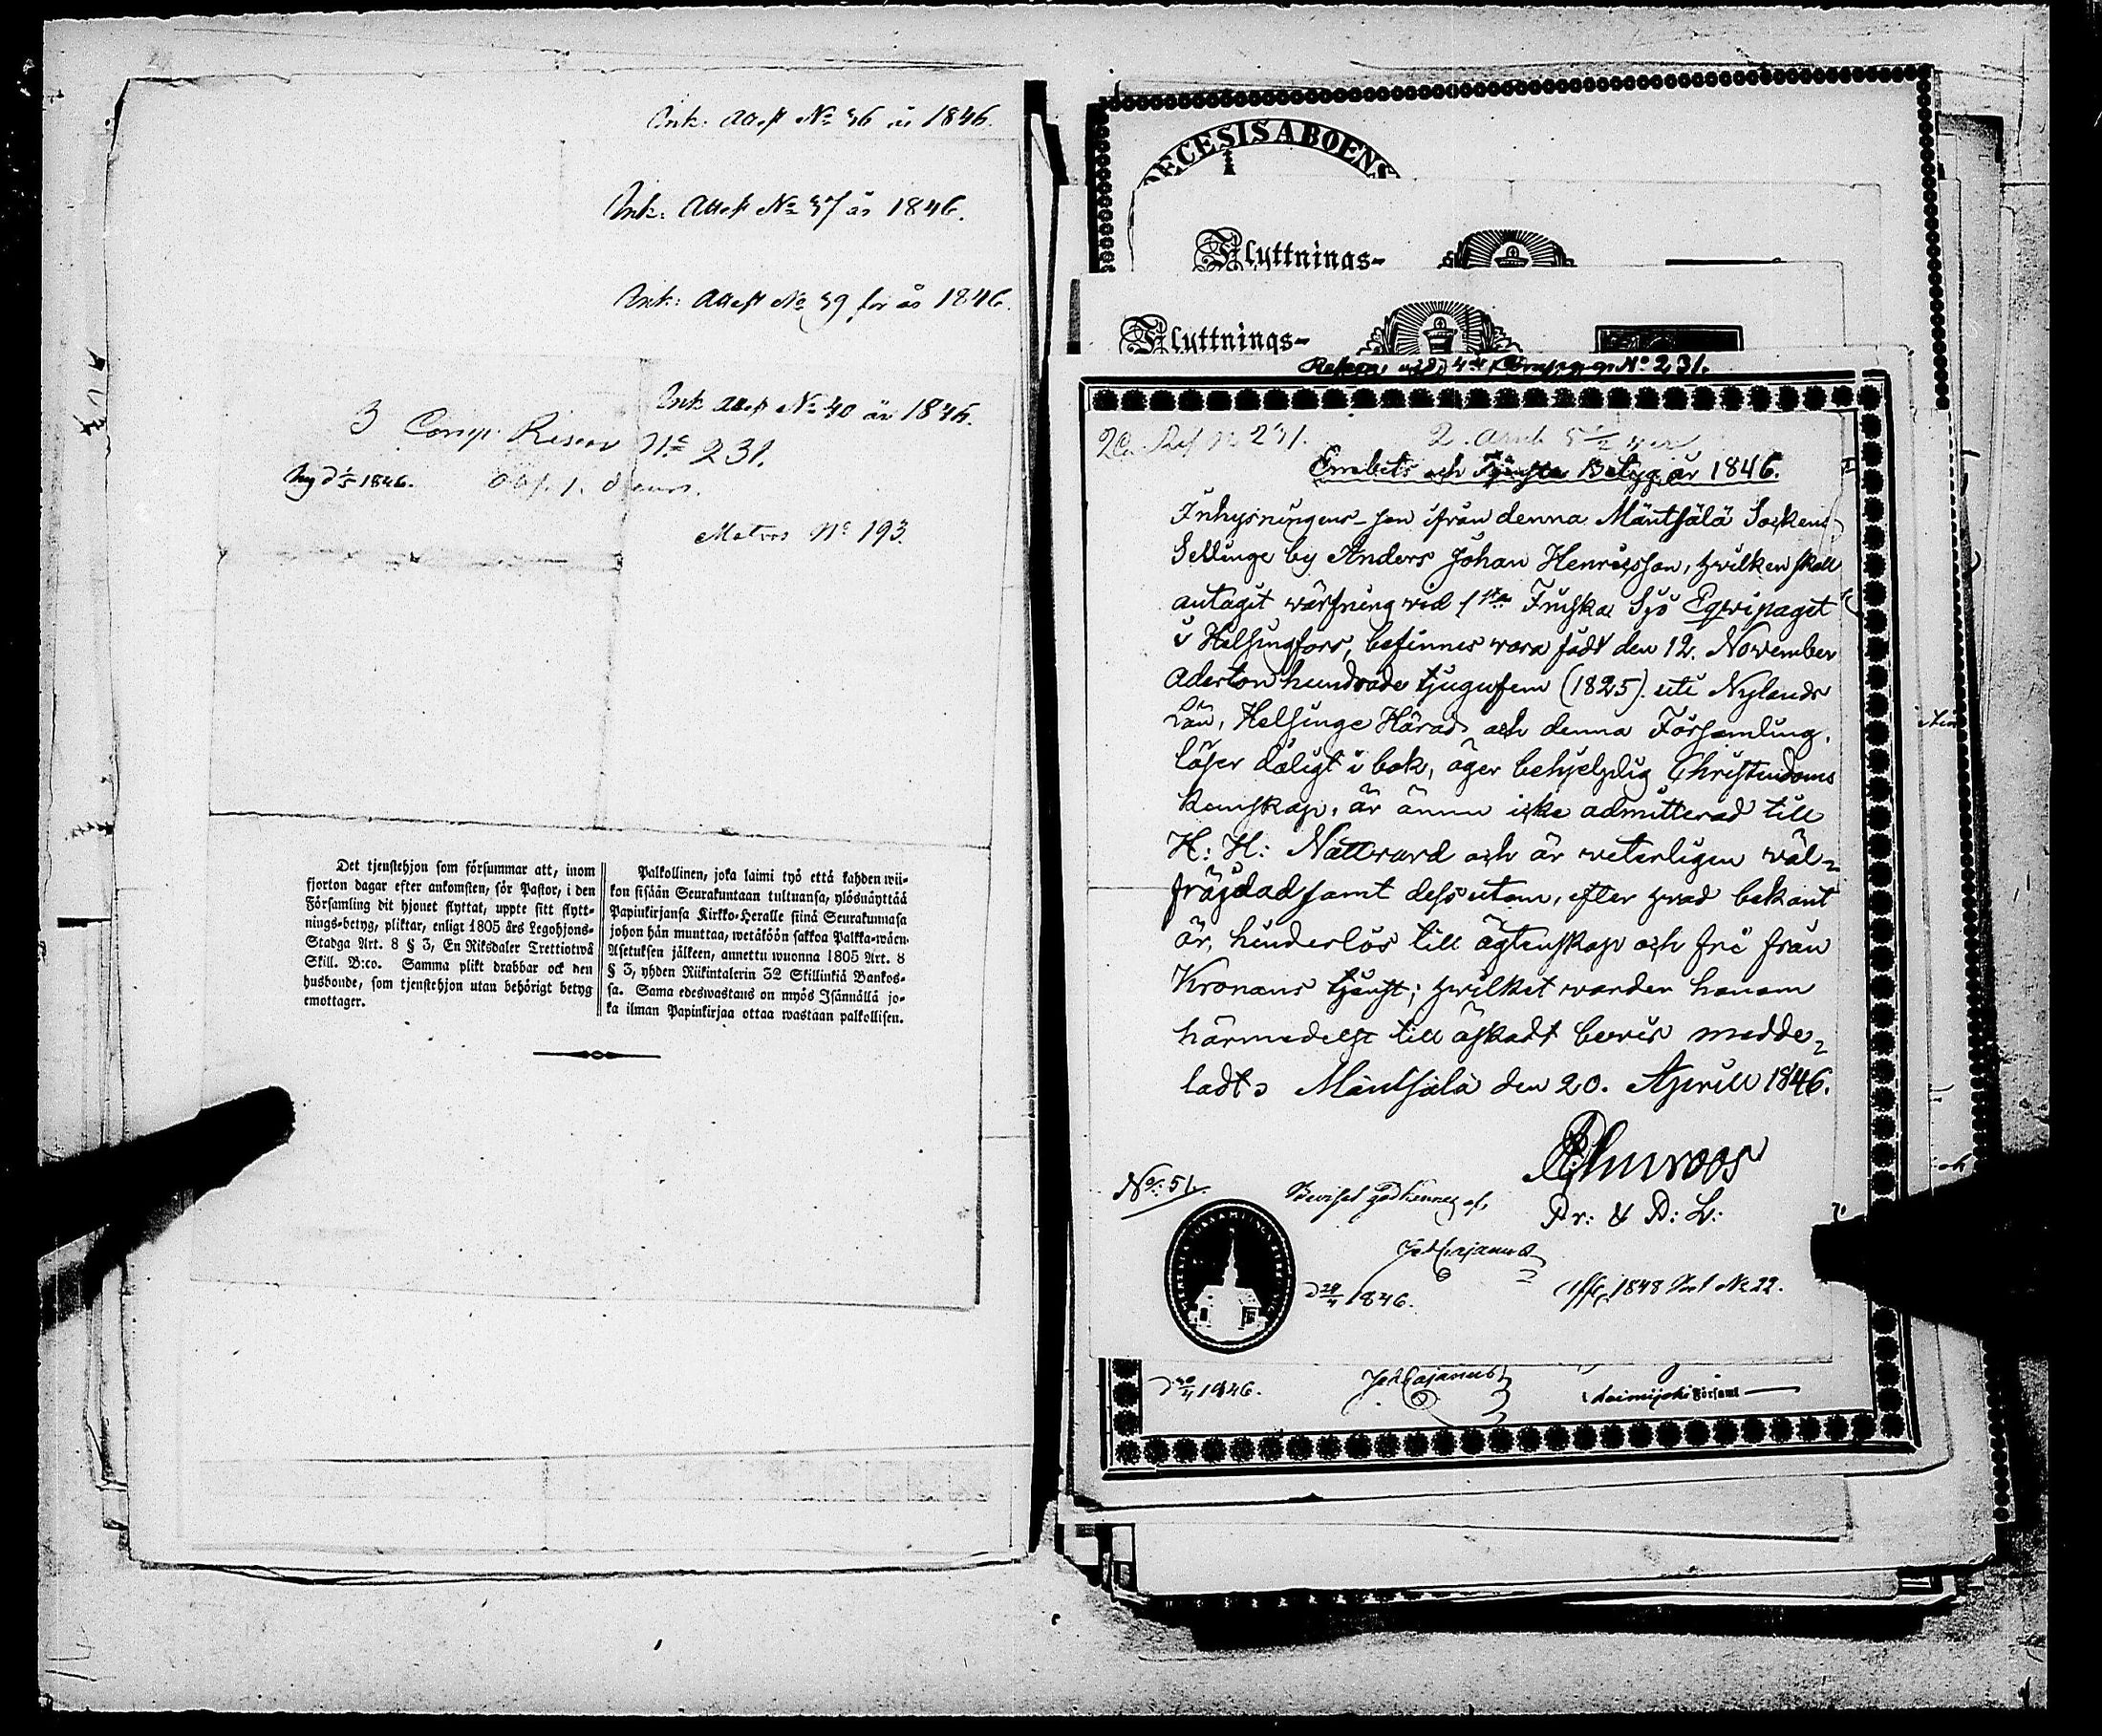 Ink: Attest No 36 år 1846.
Ink: Attest No 37 år 1846.
Ink: Attest No 39 för år 1846.
Ink: Attest No 40 år 1846.
3 Comp. Reserv No 231.
1846.
No 193.
Det tjenstehjon som försummar att, inom
fjorton dagar efter ankomsten, för Pastor, i den
Församling dit hjonet flyttat, uppte sitt flytt-
nings-betyg, pliktar, enligt 1805 års Legohjons-
Stadga Art. 8 § 3, En Riksdaler Trettiotwå
Skill. B:co. Samma plikt drabbar ock den
husbonde, som tjenstehjon utan behörigt betyg
emottager.
Palkollinen, joka laimi lyö että kahden wii-
kon sisään Seurakuntaan tultuansa, ylösnäyttää
Papinkirjansa Kirkko-Heralle siinä Seurakunnasa
johon hän munttaa, wetäköön sakkoa Palkka-wäen
Asetuksen jälkeen, annettu wuonna 1805 Art. 8
§ 3, yhden Riikintalerin 32 Skillinkiä Bankos-
sa. Sama edeswastaus on myös Isännällä jo-
ka ilman Papinkirjaa ottaa wastaan palkollisen.
DECESIS ABOENS
Flyttnings-
Flyttnings-
No 231.
No 231.
Embets och Tjenste Betyg år 1846.
Inhysningens-son ifrån denna Mäntsälä Sockens
Sellinge by Anders Johan Henricsson, hvilken skall
antagit värfning vid 1sta Finska Sjö Eqvipaget
i Helsingfors, befinnes vara född den 12. November
Adertonhundrade tjugufem (1825) uti Nylands
Län, Helsinge Härad och denna Församling,
läser dåligt i bok, äger behjelplig Christendoms
kunskap, är ännu icke admitterad till
H: H: Nattvard och är veterligen väl-
fräjdad samt dessutom, efter hvad bekant
är, hinderlös till ägtenskap och fri från
Kronans tjenst; hvilket varder honom
härmedelst till äskadt bevis medde-
ladt. Mäntsälä den 20. Aprill 1846.
No: 51.
Beviset godkännes af,
Joh Cajanus
1846.
1848 No 22.
1846.
Joh Cajanus
Loimijoki Församl